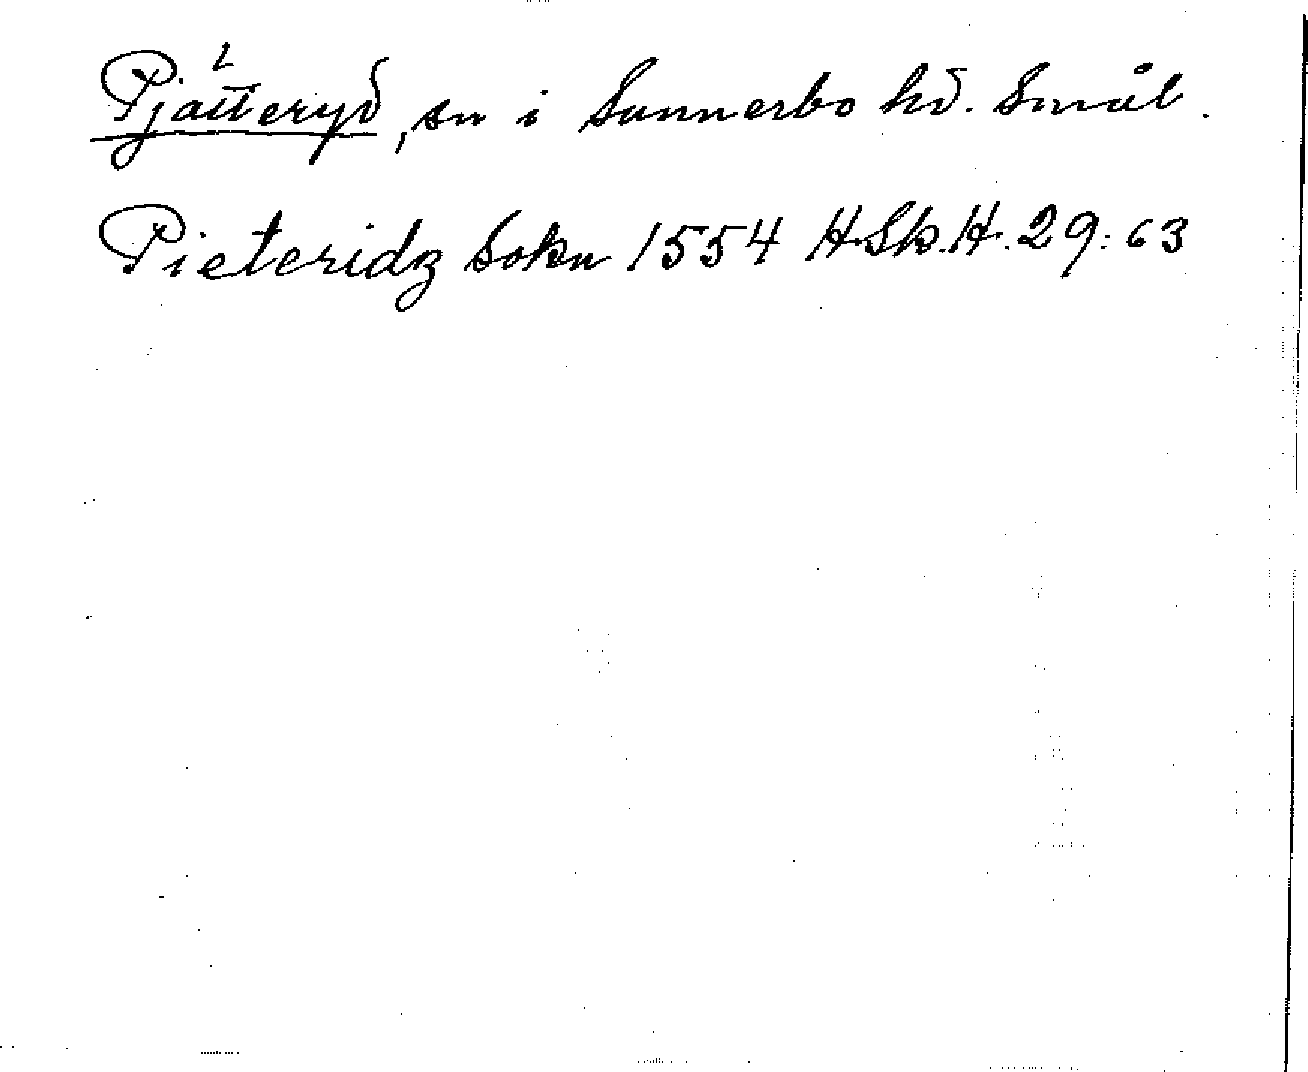 Pjätteryd, sn i Sunnerbo hd. Smål.
Pieteridz Sokn 1554 HSk.H. 29:63